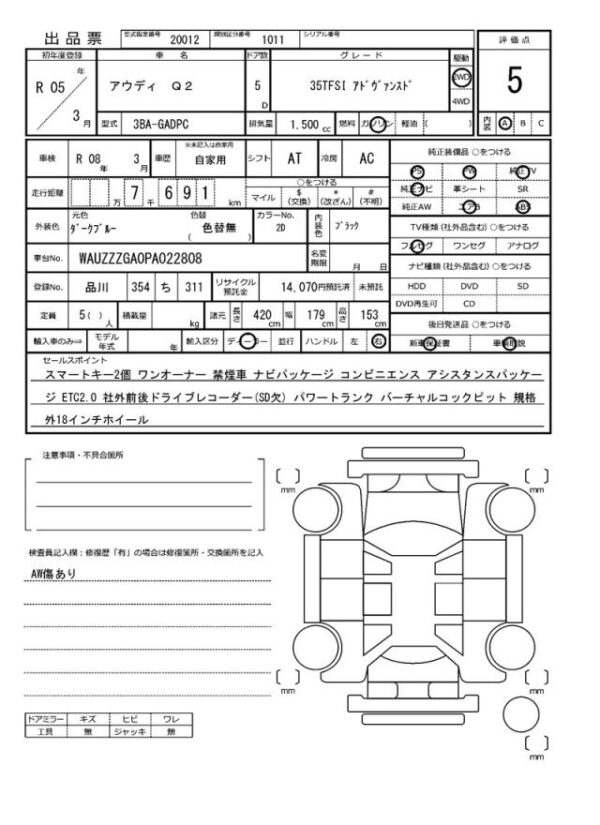 出品票 型式指定番号 20012 類別区分番号 1011 シリアル番号
評価点
初年度登録 車名 ドア数 グレード 駆動
R 05 年 3 月 アウディ Q2 5 D 35TFSI ｱﾄﾞｳﾞｧﾝｽﾄﾞ 2WD 4WD
5
型式 3BA-GADPC 排気量 1,500 cc 燃料 ガソリン 軽油 ( ) 内装 A B C
車検 R 08 年 3 月 車歴 ※未記入は自家用 自家用 シフト AT 冷房 AC
純正装備品 ○をつける
PS PW 純正TV
純正ナビ 革シート SR
純正AW エアB ABS
走行距離 万 7 千 6 9 1 km
○をつける
マイル $ (交換) * (改ざん) # (不明)
外装色 元色 ﾀﾞｰｸﾌﾞﾙｰ 色替 色替無 カラーNo. 2D 内装色 ﾌﾞﾗｯｸ
TV種類 (社外品含む) ○をつける
フルセグ ワンセグ アナログ
車台No. WAUZZZGA0PA022808 名変期限 月 日
ナビ種類 (社外品含む) ○をつける
HDD DVD SD
DVD再生可 CD
登録No. 品川 354 ち 311 リサイクル預託金 14,070円預託済 未預託
定員 5 ( ) 人 積載量 kg 諸元 長さ 420 cm 幅 179 cm 高さ 153 cm
後日発送品 ○をつける
新車保証書 車輌取説
輸入車のみ⇒ モデル年式 年 輸入区分 ディーラー 並行 ハンドル 左 右
セールスポイント
スマートキー2個 ワンオーナー 禁煙車 ナビパッケージ コンビニエンス アシスタンスパッケー
ジ ETC2.0 社外前後ドライブレコーダー(SD欠) パワートランク バーチャルコックピット 規格
外18インチホイール
注意事項・不具合箇所
検査員記入欄：修復歴「有」の場合は修復箇所・交換箇所を記入
AW傷あり
mm
mm
mm
mm
mm
ドアミラー キズ ヒビ ワレ
工具 無 ジャッキ 無